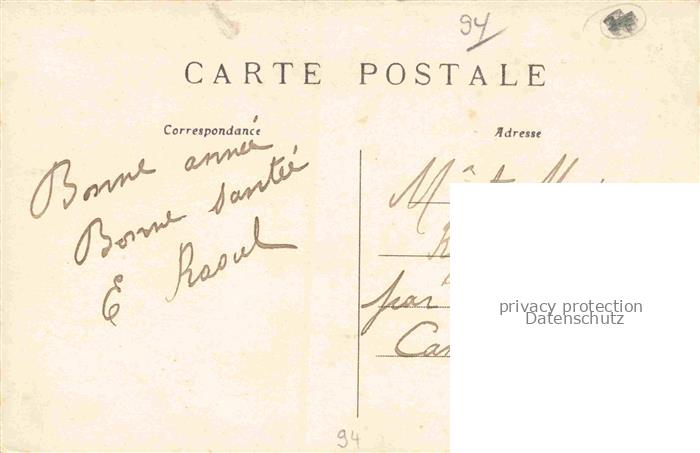 94
CARTE POSTALE
Correspondance
Adresse
Bonne année
Bonne santée
E Raoul
par
privacy protection
Datenschutz
94